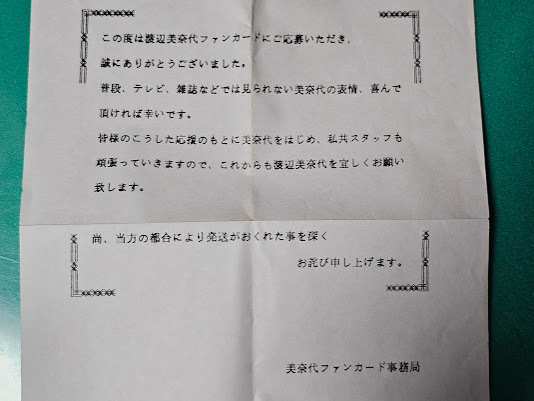 この度は渡辺美奈代ファンカードにご応募いただき、
誠にありがとうございました。
普段、テレビ、雑誌などでは見られない美奈代の表情、喜んで
頂ければ幸いです。
皆様のこうした応援のもとに美奈代をはじめ、私共スタッフも
頑張っていきますので、これからも渡辺美奈代を宜しくお願い
致します。
尚、当方の都合により発送がおくれた事を深く
お詫び申し上げます。
美奈代ファンカード事務局